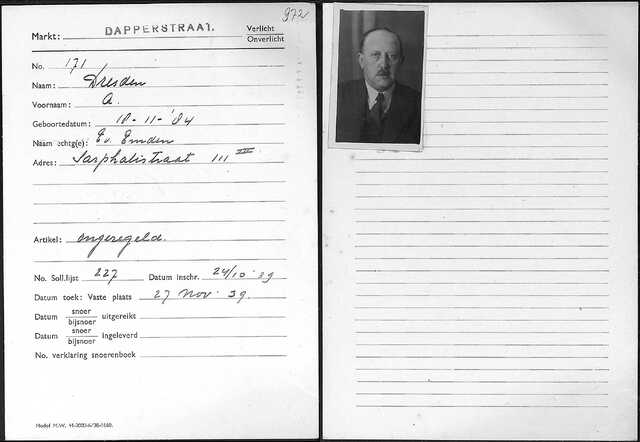 972
Markt: DAPPERSTRAAT. Verlicht
Onverlicht
No. 171
Naam: Dresden
Voornaam: A.
Geboortedatum: 18-11-'84
Naam echtg(e): E. v. Emden
Adres: Sarphatistraat 111 III
Artikel: ongeregeld.
No. Soll.lijst 227 Datum inschr. 24/10 '39
Datum toek: Vaste plaats 27 Nov. 39.
Datum snoer
bijsnoer uitgereikt
Datum snoer
bijsnoer ingeleverd
No. verklaring snoerenboek